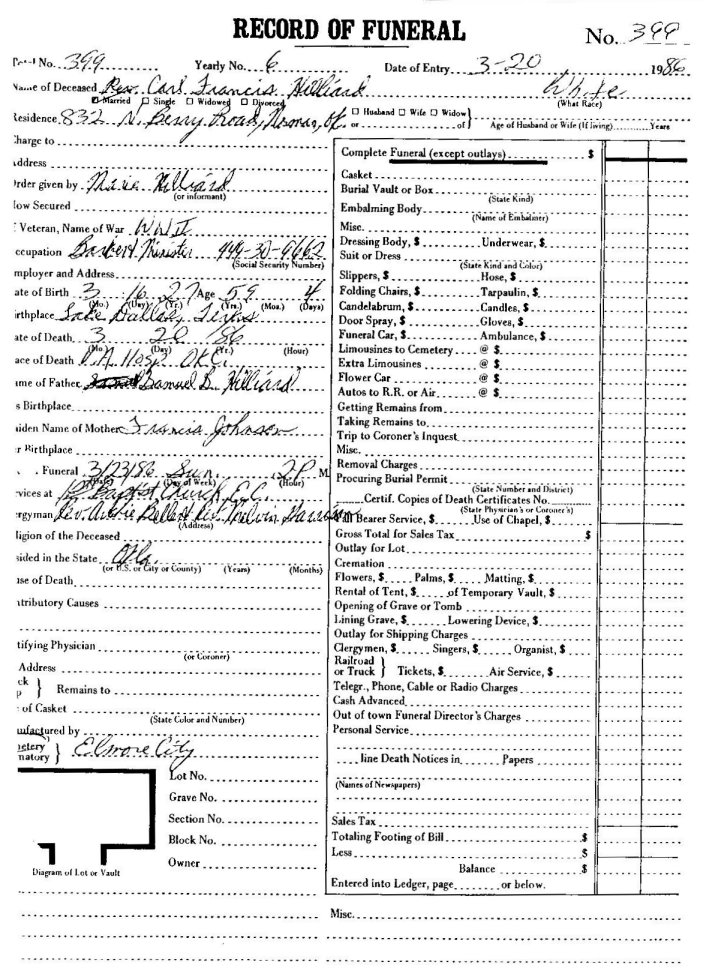 RECORD OF FUNERAL
No. 399
No. 399 Yearly No. 6 Date of Entry 3-20 1986
Name of Deceased Rev. Carl Francis Hilliard White
Married Single Widowed Divorced (What Race)
Residence 832 N. Berry Road, Norman, Ok. or Husband Wife Widow of Age of Husband or Wife (If living) Years
Charge to
Address
Order given by Marie Hilliard
(or informant)
How Secured
If Veteran, Name of War WWII
Occupation Minister 444-30-9662
(Social Security Number)
Employer and Address
Date of Birth 3 16 27 Age 59 4
(Mo.) (Day) (Yr.) (Yrs.) (Mos.) (Days)
Birthplace Lake Dallas, Texas
Date of Death 3 20 '86
(Mo.) (Day) (Yr.) (Hour)
Place of Death V.A. Hosp. OKC
Name of Father Samuel B. Hilliard
's Birthplace
Maiden Name of Mother Francis Johnson
r Birthplace
. Funeral 3/23/86 Sun. 2P M
(Date) (Day of Week) (Hour)
Services at 1st Baptist Church, E.C.
Clergyman Rev. Rev. Melvin
(Address)
Religion of the Deceased
Resided in the State Okla
(or U.S. or City or County) (Years) (Months)
Cause of Death
Contributory Causes
Certifying Physician
(or Coroner)
Address
ck
p } Remains to
of Casket
(State Color and Number)
Manufactured by
metery
matory } Elmore City
Lot No.
Grave No.
Section No.
Block No.
Owner
Diagram of Lot or Vault
Complete Funeral (except outlays) $
Casket
Burial Vault or Box
(State Kind)
Embalming Body
(Name of Embalmer)
Misc.
Dressing Body, $ Underwear, $
Suit or Dress
(State Kind and Color)
Slippers, $ Hose, $
Folding Chairs, $ Tarpaulin, $
Candelabrum, $ Candles, $
Door Spray, $ Gloves, $
Funeral Car, $ Ambulance, $
Limousines to Cemetery @ $
Extra Limousines @ $
Flower Car @ $
Autos to R.R. or Air @ $
Getting Remains from
Taking Remains to
Trip to Coroner's Inquest
Misc.
Removal Charges
Procuring Burial Permit
(State Number and District)
Certif. Copies of Death Certificates No.
(State Physician's or Coroner's)
Pall Bearer Service, $ Use of Chapel, $
Gross Total for Sales Tax $
Outlay for Lot
Cremation
Flowers, $ Palms, $ Matting, $
Rental of Tent, $ of Temporary Vault, $
Opening of Grave or Tomb
Lining Grave, $ Lowering Device, $
Outlay for Shipping Charges
Clergymen, $ Singers, $ Organist, $
Railroad
or Truck } Tickets, $ Air Service, $
Telegr., Phone, Cable or Radio Charges
Cash Advanced
Out of town Funeral Director's Charges
Personal Service
line Death Notices in Papers
(Names of Newspapers)
Sales Tax
Totaling Footing of Bill $
Less $
Balance $
Entered into Ledger, page or below.
Misc.